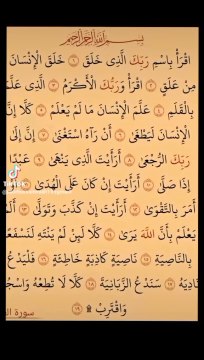 بِسْمِ اللَّهِ الرَّحْمَٰنِ الرَّحِيمِ
اقْرَأْ بِاسْمِ رَبِّكَ الَّذِي خَلَقَ ١ خَلَقَ الْإِنْسَانَ
مِنْ عَلَقٍ ٢ اقْرَأْ وَرَبُّكَ الْأَكْرَمُ ٣ الَّذِي عَلَّمَ
بِالْقَلَمِ ٤ عَلَّمَ الْإِنْسَانَ مَا لَمْ يَعْلَمْ ٥ كَلَّا إِنَّ
الْإِنْسَانَ لَيَطْغَىٰ ٦ أَنْ رَآهُ اسْتَغْنَىٰ ٧ إِنَّ إِلَىٰ
رَبِّكَ الرُّجْعَىٰ ٨ أَرَأَيْتَ الَّذِي يَنْهَىٰ ٩ عَبْدًا
إِذَا صَلَّىٰ ١٠ أَرَأَيْتَ إِنْ كَانَ عَلَى الْهُدَىٰ ١١
أَمَرَ بِالتَّقْوَىٰ ١٢ أَرَأَيْتَ إِنْ كَذَّبَ وَتَوَلَّىٰ ١٣ أَلَمْ
يَعْلَمْ بِأَنَّ اللَّهَ يَرَىٰ ١٤ كَلَّا لَئِنْ لَمْ يَنْتَهِ لَنَسْفَعًا
بِالنَّاصِيَةِ ١٥ نَاصِيَةٍ كَاذِبَةٍ خَاطِئَةٍ ١٦ فَلْيَدْعُ
نَادِيَهُ ١٧ سَنَدْعُ الزَّبَانِيَةَ ١٨ كَلَّا لَا تُطِعْهُ وَاسْجُدْ
وَاقْتَرِبْ ۩ ١٩
سورة